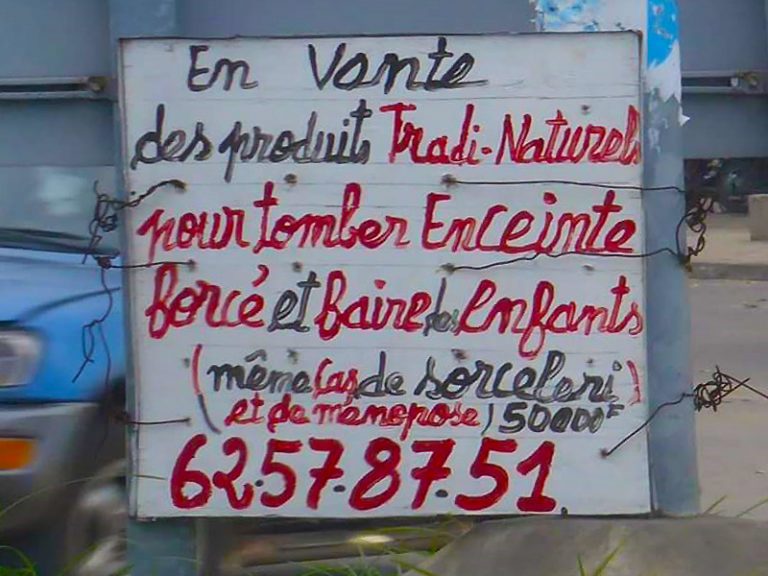 En Vante
des produits Tradi-Naturels
pour tomber Enceinte
forcé et faire des enfants
(même cas de sorceleri)
(et de menopose) 50000F
62.57.87.51.